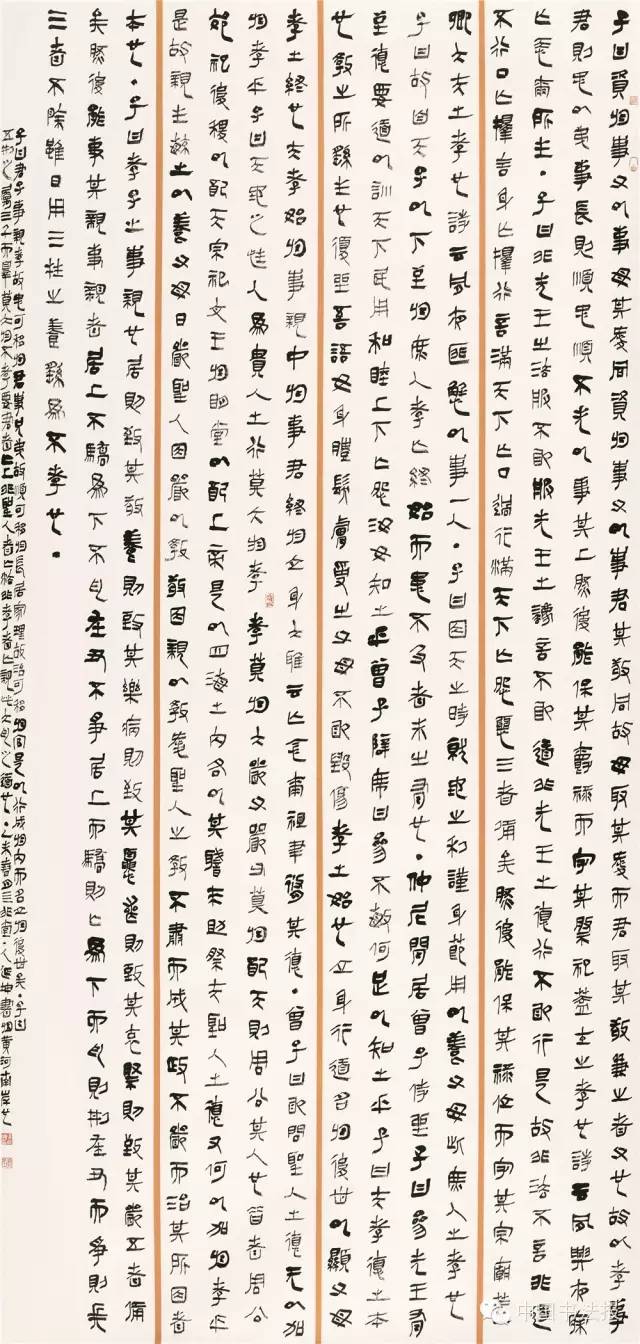 子曰資於事父以事母其愛同資於事父以事君其敬同故母取其愛而君取其敬兼之者父也故以孝事
君則忠以弟事長則順忠順不失以事其上然後能保其爵祿而守其祭祀蓋士之孝也詩云夙興夜寐
亡忝爾所生。子曰非先王之法服不敢服先王之法言不敢道非先王之德行不敢行是故非法不言非道
不行口亡擇言身亡擇行言滿天下亡口過行滿天下亡怨惡三者備矣然後能保其祿位而守其宗廟蓋
卿大夫之孝也詩云夙夜匪懈以事一人。子曰因天之時就地之利謹身節用以養父母此庶人之孝也
子曰故自天子以下至於庶人孝亡終始而患不及者未之有也。仲尼閒居曾子侍坐子曰參先王有
至德要道以訓天下民用和睦上下亡怨汝知之乎曾子避席曰參不敏何足以知之乎子曰夫孝德之本
也教之所繇生也復坐吾語女身體髮膚受之父母不敢毀傷孝之始也立身行道名於後世以顯父母
孝之終也夫孝始於事親中於事君終於立身大雅云亡念爾祖聿脩其德。曾子曰敢問聖人之德亡以加
於孝乎子曰天地之性人為貴人之行莫大於孝孝莫於大嚴父嚴父莫於配天則周公其人也昔者周公
郊祀后稷以配天宗祀文王於明堂以配上帝是以四海之內各以其職來助祭夫聖人之德又何以加於孝乎
是故親生毓之以養父母日嚴聖人因嚴以教敬因親以教愛聖人之教不肅而成其政不嚴而治其所因者
本也。子曰孝子之事親也居則致其敬養則致其樂病則致其憂喪則致其哀祭則致其嚴五者備
矣然後能事其親事親者居上不驕為下不亂在丑不爭居上而驕則亡為下而亂則刑在丑而爭則兵
三者不除雖日用三牲之養繇為不孝也。
子曰君子事親孝故忠可移於君事兄弟故順可移於長居家理故治可移於官是以行成於內而名立於後世矣。子曰
五刑之屬三千而辠莫大於不孝要君者亡上非聖人者亡法非孝者亡親此大亂之道也。書於黃河南岸也
中国书法报